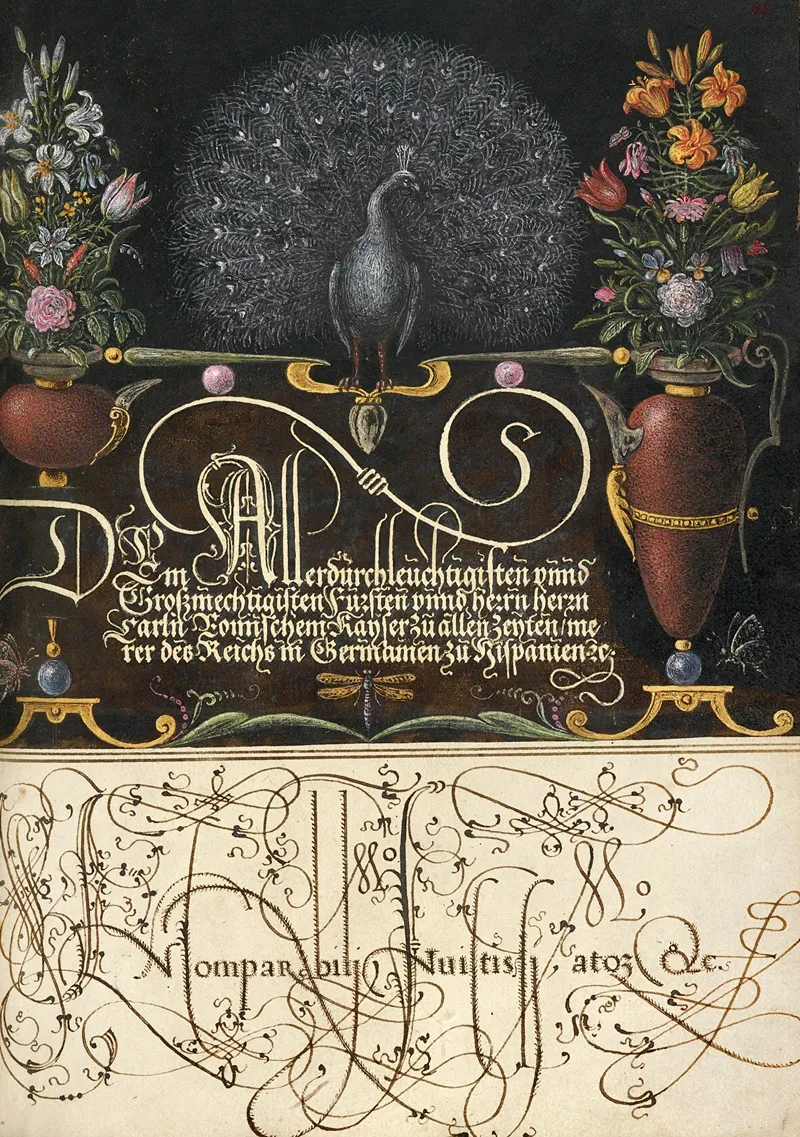 S
DEm Allerdürchleüchtigisten vnnd
Großmechtigisten Fürsten vnnd herrn herrn
Carln Römischem Kayser zü allen Zeyten / me
rer des Reichs in Germanien zü Hispanien ꝛc:
Mo Mo
omparabilij Nuitissi, atoꝛ &c.